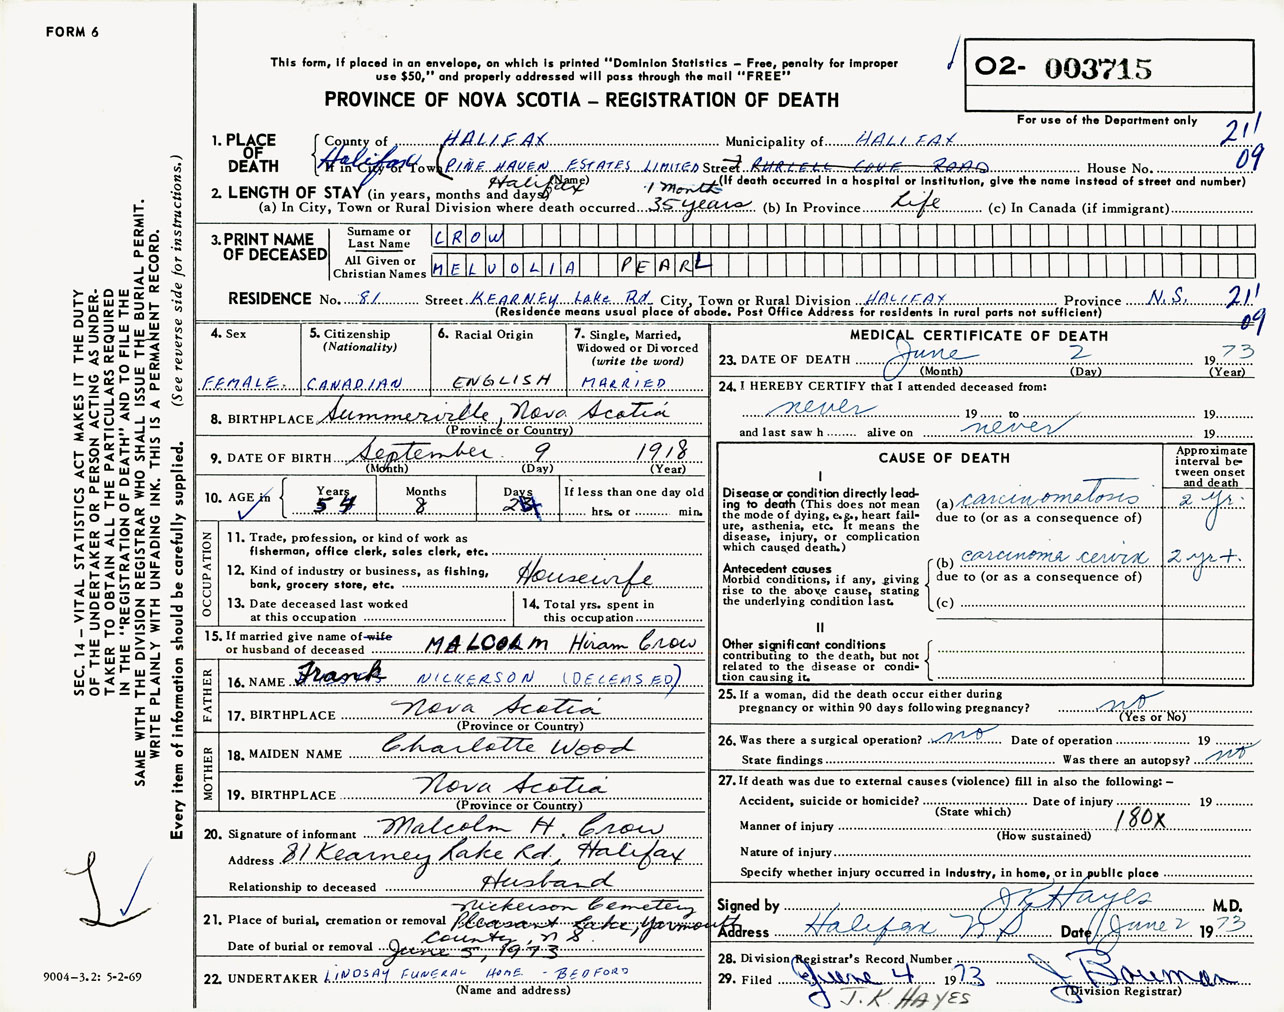 FORM 6
This form, if placed in an envelope, on which is printed "Dominion Statistics – Free, penalty for improper
use $50," and properly addressed will pass through the mail "FREE"
PROVINCE OF NOVA SCOTIA – REGISTRATION OF DEATH
02- 003715
For use of the Department only
21'
09
1. PLACE OF DEATH
County of HALIFAX Municipality of HALIFAX
Halifax If in City or Town PINE HAVEN ESTATES LIMITED Street 7 PURCELL COVE ROAD House No.
Halifax (Name) (If death occurred in a hospital or institution, give the name instead of street and number)
2. LENGTH OF STAY (in years, months and days) 1 Month
(a) In City, Town or Rural Division where death occurred 35 years (b) In Province Life (c) In Canada (if immigrant)
3. PRINT NAME OF DECEASED
Surname or Last Name CROW
All Given or Christian Names MELVOLIA PEARL
RESIDENCE No. 81 Street KEARNEY Lake Rd. City, Town or Rural Division HALIFAX Province N.S. 21'
(Residence means usual place of abode. Post Office Address for residents in rural parts not sufficient) 09
4. Sex
FEMALE.
5. Citizenship
(Nationality)
CANADIAN
6. Racial Origin
ENGLISH
7. Single, Married,
Widowed or Divorced
(write the word)
MARRIED
8. BIRTHPLACE Summerville, Nova Scotia
(Province or Country)
9. DATE OF BIRTH September 9 1918
(Month) (Day) (Year)
10. AGE in
Years 54
Months 8
Days
If less than one day old
hrs. or min.
OCCUPATION
11. Trade, profession, or kind of work as
fisherman, office clerk, sales clerk, etc.
12. Kind of industry or business, as fishing,
bank, grocery store, etc. Housewife
13. Date deceased last worked
at this occupation
14. Total yrs. spent in
this occupation
15. If married give name of wife
or husband of deceased MALCOLM Hiram Crow
FATHER
16. NAME Frank NICKERSON (DECEASED)
17. BIRTHPLACE Nova Scotia
(Province or Country)
MOTHER
18. MAIDEN NAME Charlotte Wood
19. BIRTHPLACE Nova Scotia
(Province or Country)
20. Signature of informant Malcolm H. Crow
Address 81 Kearney Lake Rd., Halifax
Relationship to deceased Husband
Nickerson Cemetery
21. Place of burial, cremation or removal Pleasant Lake, Yarmouth
County, N S.
Date of burial or removal June 5, 1973
22. UNDERTAKER LINDSAY FUNERAL HOME - BEDFORD
(Name and address)
MEDICAL CERTIFICATE OF DEATH
23. DATE OF DEATH June 2 1973
(Month) (Day) (Year)
24. I HEREBY CERTIFY that I attended deceased from:
never 19 to 19
and last saw h alive on never 19
CAUSE OF DEATH
Approximate
interval be-
tween onset
and death
I
Disease or condition directly lead-
ing to death (This does not mean
the mode of dying, e.g., heart fail-
ure, asthenia, etc. It means the
disease, injury, or complication
which caused death.)
(a) carcinomatosis 2 yr.
due to (or as a consequence of)
Antecedent causes
Morbid conditions, if any, giving
rise to the above cause, stating
the underlying condition last.
(b) carcinoma cervix 2 yr +.
due to (or as a consequence of)
(c)
II
Other significant conditions
contributing to the death, but not
related to the disease or condi-
tion causing it.
25. If a woman, did the death occur either during
pregnancy or within 90 days following pregnancy? no
(Yes or No)
26. Was there a surgical operation? no Date of operation 19
State findings Was there an autopsy? no
27. If death was due to external causes (violence) fill in also the following: –
Accident, suicide or homicide? Date of injury 19
(State which)
Manner of injury 180X
(How sustained)
Nature of injury
Specify whether injury occurred in industry, in home, or in public place
Signed by J K Hayes M.D.
Address Halifax N S Date June 2 1973
28. Division Registrar's Record Number
29. Filed June 4 1973 J Bowman
(Division Registrar)
J. K. HAYES
SEC. 14 – VITAL STATISTICS ACT MAKES IT THE DUTY
OF THE UNDERTAKER OR PERSON ACTING AS UNDER-
TAKER TO OBTAIN ALL THE PARTICULARS REQUIRED
IN THE "REGISTRATION OF DEATH" AND TO FILE THE
SAME WITH THE DIVISION REGISTRAR WHO SHALL ISSUE THE BURIAL PERMIT.
WRITE PLAINLY WITH UNFADING INK. THIS IS A PERMANENT RECORD.
Every item of information should be carefully supplied. (See reverse side for instructions.)
9004–3.2: 5-2-69